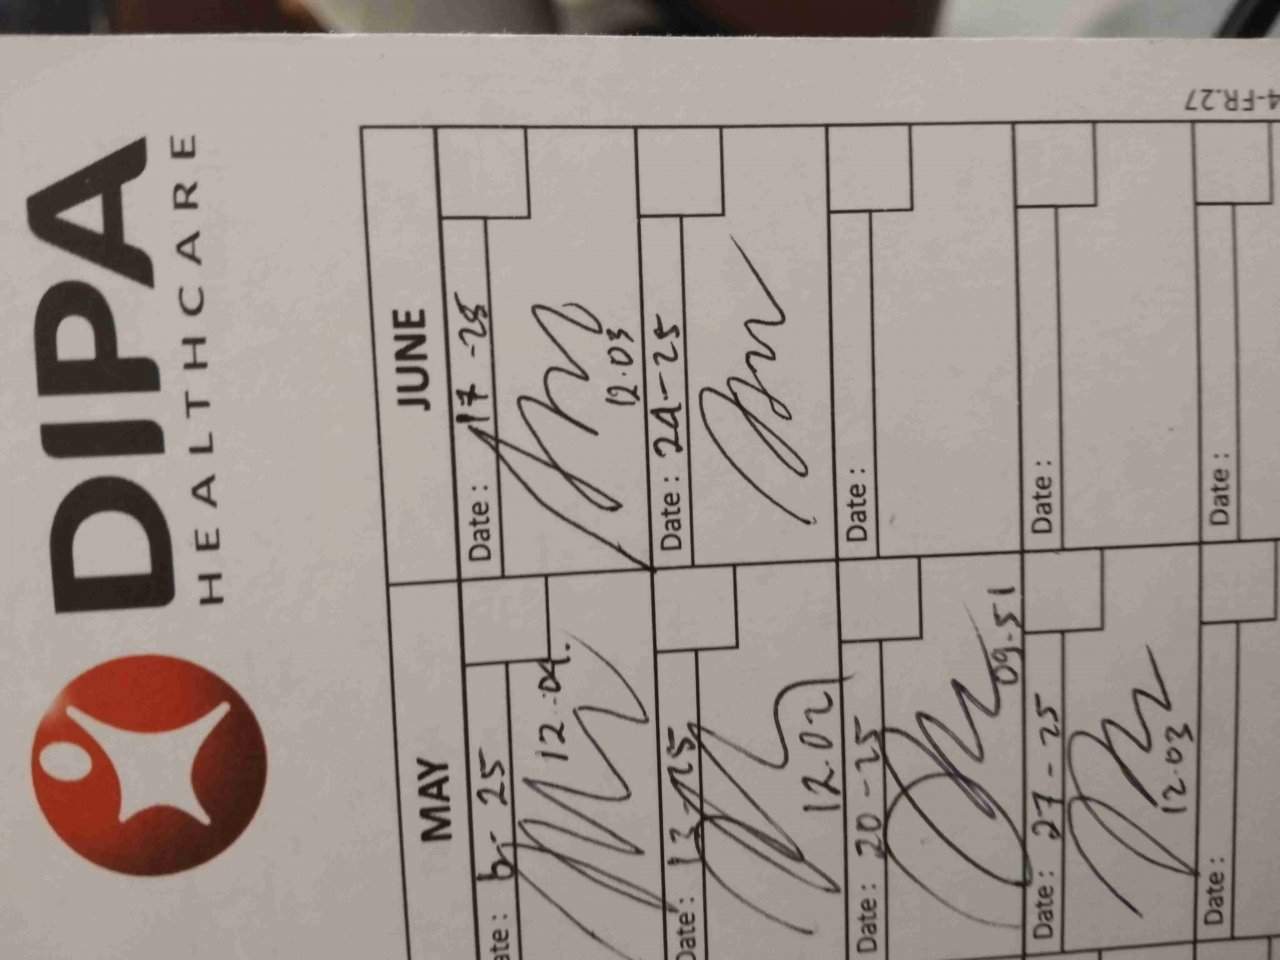 DIPA
HEALTHCARE
4-FR.27
MAY
ate : 6-25
12.04.
Date : 13-25
12.02
Date : 20-25
09.51
Date : 27-25
12.03
Date :
JUNE
Date : 17-25
12.03
Date : 24-25
Date :
Date :
Date :